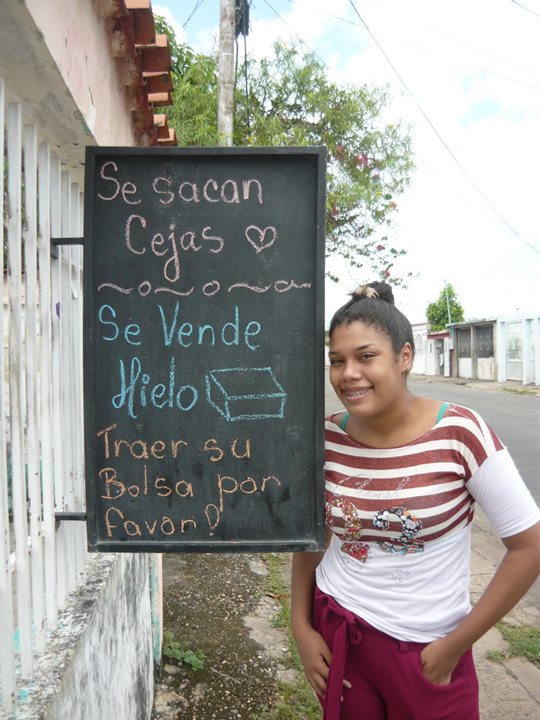 Se sacan
Cejas
Se Vende
Hielo
Traer su
Bolsa por
favor!
22